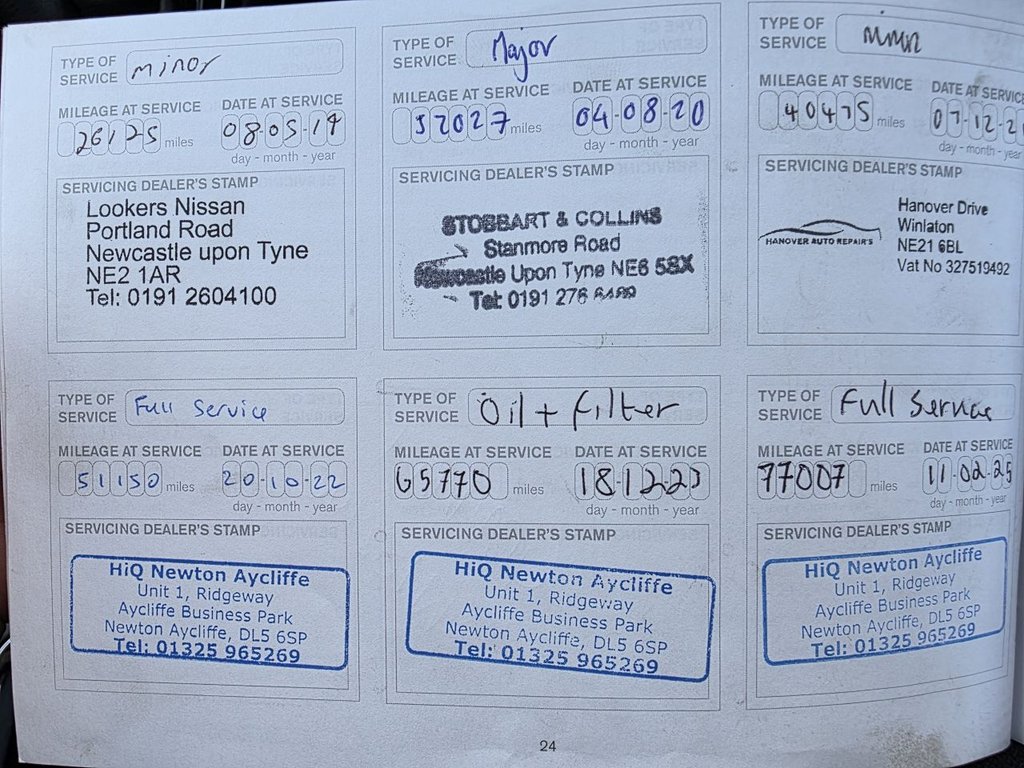 TYPE OF SERVICE minor
MILEAGE AT SERVICE DATE AT SERVICE
26125 miles 08-05-19
day - month - year
SERVICING DEALER'S STAMP
Lookers Nissan
Portland Road
Newcastle upon Tyne
NE2 1AR
Tel: 0191 2604100
TYPE OF SERVICE Major
MILEAGE AT SERVICE DATE AT SERVICE
37027 miles 04-08-20
day - month - year
SERVICING DEALER'S STAMP
STOBBART & COLLINS
Stanmore Road
Newcastle Upon Tyne NE6 5SX
Tel: 0191 276
TYPE OF SERVICE
MILEAGE AT SERVICE DATE AT SERVICE
40475 miles 07-12-2
day - month - year
SERVICING DEALER'S STAMP
HANOVER AUTO REPAIR'S
Hanover Drive
Winlaton
NE21 6BL
Vat No 327519492
TYPE OF SERVICE Full Service
MILEAGE AT SERVICE DATE AT SERVICE
51150 miles 20-10-22
day - month - year
SERVICING DEALER'S STAMP
HiQ Newton Aycliffe
Unit 1, Ridgeway
Aycliffe Business Park
Newton Aycliffe, DL5 6SP
Tel: 01325 965269
TYPE OF SERVICE Oil + filter
MILEAGE AT SERVICE DATE AT SERVICE
65770 miles 18-12-23
day - month - year
SERVICING DEALER'S STAMP
HiQ Newton Aycliffe
Unit 1, Ridgeway
Aycliffe Business Park
Newton Aycliffe, DL5 6SP
Tel: 01325 965269
TYPE OF SERVICE Full Service
MILEAGE AT SERVICE DATE AT SERVICE
77007 miles 11-02-25
day - month - year
SERVICING DEALER'S STAMP
HiQ Newton Aycliffe
Unit 1, Ridgeway
Aycliffe Business Park
Newton Aycliffe, DL5 6SP
Tel: 01325 965269
24